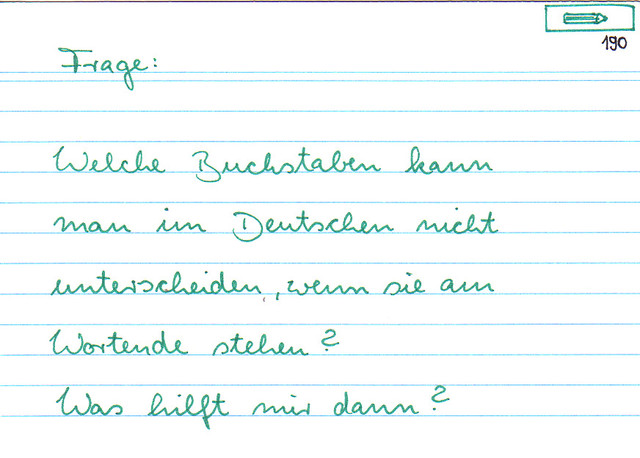 190
Frage:
Welche Buchstaben kann
man im Deutschen nicht
unterscheiden, wenn sie am
Wortende stehen?
Was hilft mir dann?